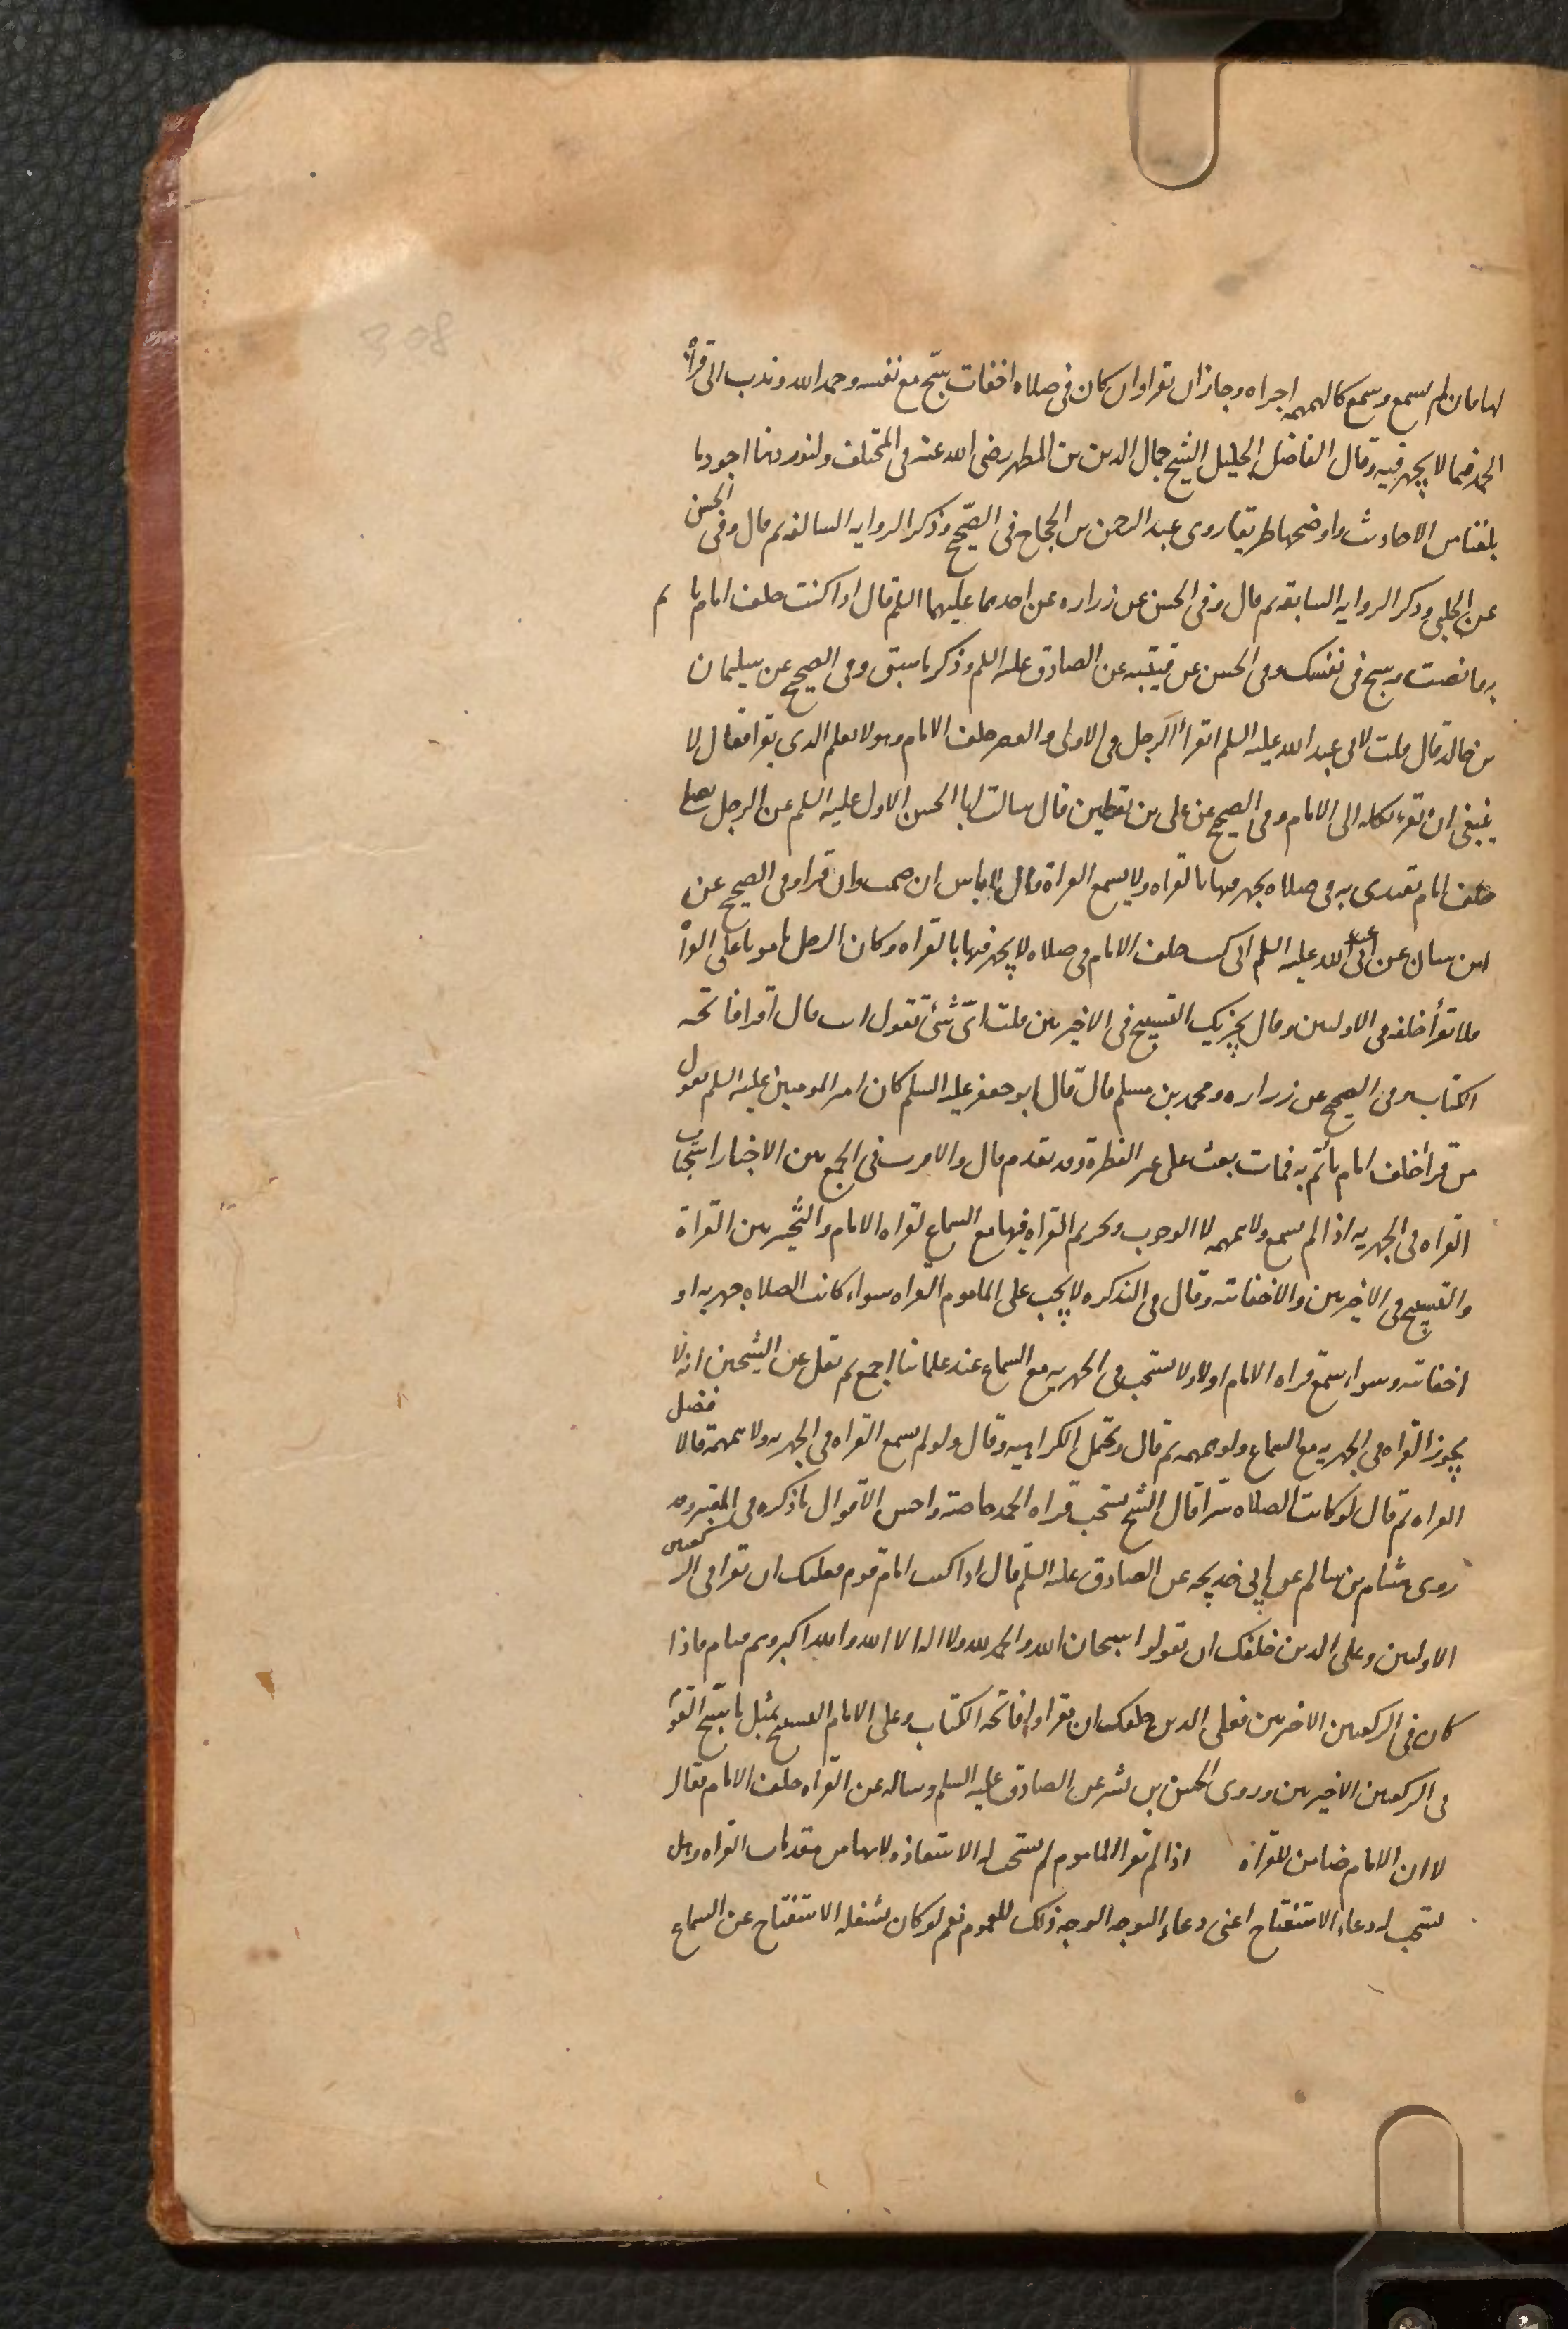 لها فان لم يسمع وسمع كالهمهمه اجزاه وجاز ان يقرا وان كان فى صلاه اخفات سبّح مع نفسه وحمد الله وندب الى قراة
الحمد فيما لا يجهر فيه وقال الفاضل الجليل الشيخ جمال الدين بن المطهر رضى الله عنه فى المختلف ولنورد هنا اجود ما
بلغنا من الاحاديث واوضحها طريقا روى عبد الرحمن بن الحجاج فى الصّحيح وذكر الروايه السالفه ثم قال وفى الحسن
عن الحلبى وذكر الروايه السابقه ثم قال وفى الحسن عن زراره عن احدهما عليهما السلم قال اذا كنت خلف امام تاتم
به فانصت وسبح فى نفسك وفى الحسن عن قتيبه عن الصادق عليه السلم وذكر ما سبق وفى الصحيح عن سليمان
بن خالد قال قلت لابى عبد الله عليه السلم ايقرأ الرجل فى الاولى والعصر خلف الامام وهو لا يعلم انه يقرا فقال لا
ينبغى ان يقرء يكله الى الامام وفى الصحيح عن على بن يقطين قال سالت ابا الحسن الاول عليه السلم عن الرجل يصلى
خلف امام يقتدى به فى صلاه يجهر فيها بالقراه ولا يسمع القراة قال لا باس ان صمت وان قرا وفى الصحيح عن
ابن سنان عن ابى عبد الله عليه السلم اذا كنت خلف الامام فى صلاه لا يجهر فيها بالقراه وكان الرجل مامونا على القراة
فلا تقرأ خلفه فى الاوليين وقال يجزيك التسبيح فى الاخيرتين قلت اىّ شئ تقول انت قال اقرا فاتحه
الكتاب وفى الصحيح عن زراره ومحمد بن مسلم قال قال ابو جعفر عليه السلم كان امير المومنين عليه السلم يقول
من قرأ خلف امام يأتم به فمات بعث على غير الفطرة وقد تقدم قال والاقرب فى الجمع بين الاخبار استحباب
القراه فى الجهريه اذا لم يسمع ولا همهمه لا الوجوب وتحريم القراه فيها مع السماع لقراه الامام والتخيير بين القراة
والتسبيح فى الاخيرتين والاخفاتيه وقال فى التذكره لا يجب على الماموم القراه سواء كانت الصلاه جهريه او
اخفاتيه وسواء سمع قراه الامام اولا ولا يستحب فى الجهريه مع السماع عند علمائنا اجمع ثم نقل عن الشيخين انه لا
يجوز القراه فى الجهريه مع السماع ولو همهمه ثم قال ويحتمل الكراهيه وقال ولو لم يسمع القراه فى الجهريه ولا همهمة فالافضل
القراه ثم قال لو كانت الصلاه سرّا قال الشيخ يستحب قراه الحمد خاصة واحسن الاقوال ما ذكره فى المعتبر وقد
روى هشام بن سالم عن ابى خديجه عن الصادق عليه السلم قال اذا كنت امام قوم فعليك ان تقرا فى الركعتين
الاوليين وعلى الذين خلفك ان يقولوا سبحان الله والحمد لله ولا اله الا الله والله اكبر وهم قيام فاذا
كان فى الركعتين الاخيرتين فعلى الذين خلفك ان يقراوا فاتحه الكتاب وعلى الامام التسبيح مثل ما يسبّح القوم
فى الركعتين الاخيرتين وروى الحسن بن بشير عن الصادق عليه السلم وساله عن القراه خلف الامام فقال
لا ان الامام ضامن للقراة اذا لم يقرا الماموم لم يستحب له الاستعاذه لانها من مقدمات القراه وهل
يستحب له دعاء الاستفتاح اعنى دعاء التوجه الوجه ذلك للعموم نعم لو كان يشغله الاستفتاح عن السماع